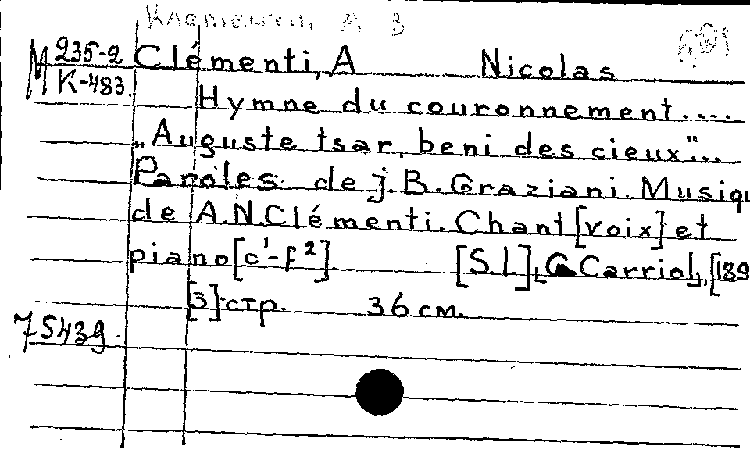 M 235-2
K-483
Clémenti, A Nicolas
Hymne du couronnement....
„Auguste tsar, beni des cieux"...
Paroles de j. B. Graziani. Musiqu
de A.N.Clémenti. Chant [voix] et
piano [c¹-f²] [S.l], G Carriol, [189
[3] стр. 36 см.
75439.